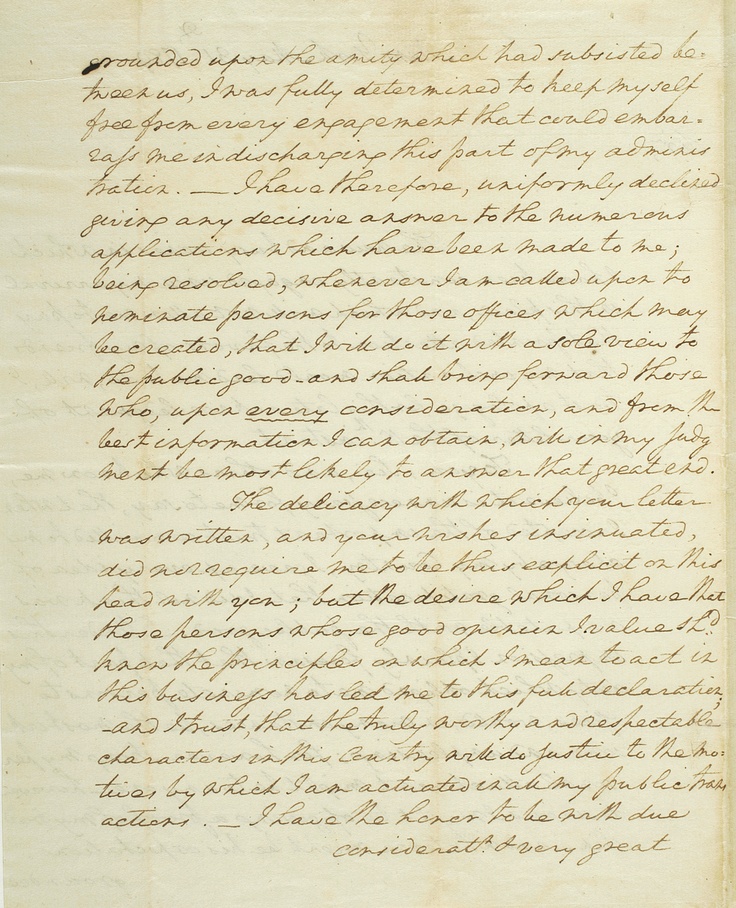 grounded upon the amity which had subsisted be=
tween us, I was fully determined to keep myself
free from every engagement that could embar=
rass me in discharging this part of my adminis
tration. — I have therefore, uniformly declined
giving any decisive answer to the numerous
applications which have been made to me;
being resolved, whenever I am called upon to
nominate persons for those offices which may
be created, that I will do it with a sole view to
the public good - and shall bring forward those
who, upon every consideration, and from the
best information I can obtain, will in my judg
ment be most likely to answer that great end.
The delicacy with which your letter
was written, and your wishes insinuated,
did not require me to be thus explicit on this
head with you; but the desire which I have that
those persons whose good opinion I value shd.
know the principles on which I mean to act in
this business has led me to this full declaration;
-and I trust, that the truly worthy and respectable
characters in this Country will do justice to the mo=
tives by which I am actuated in all my public trans
actions. — I have the honor to be with due
consideratn. & very great